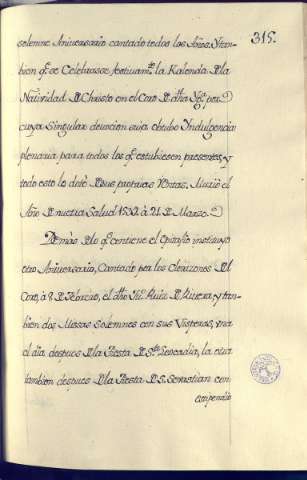 315.
solemne Aniversario cantado todos los Años. Ytan-
bien qe. se Celebrase perpetuamte. la Kalenda de la
Natividad de Christo en el Coro de dha Yga. por
cuya Singular devocion suia obtubo Yndulgencia
plenaria para todos los qe. estubiesen presentes, y
todo esto lo dotò de sus propias Rentas. Murio el
Año de nuestra Salud 1532. à 21. de Marzo.
Demàs de lo qe. contiene el Epitafio instituyo
otro Aniversario, Cantado por los Clerizones del
Coro, à 8 de Febrero, el dho Ruiz de Rivera, y tan-
bien dos Missas Solemnes con sus Visperas, una
el dia despues de la fiesta de Sta. Leocadia, la otra
tambien despues de la fiesta de S. Sebastian con